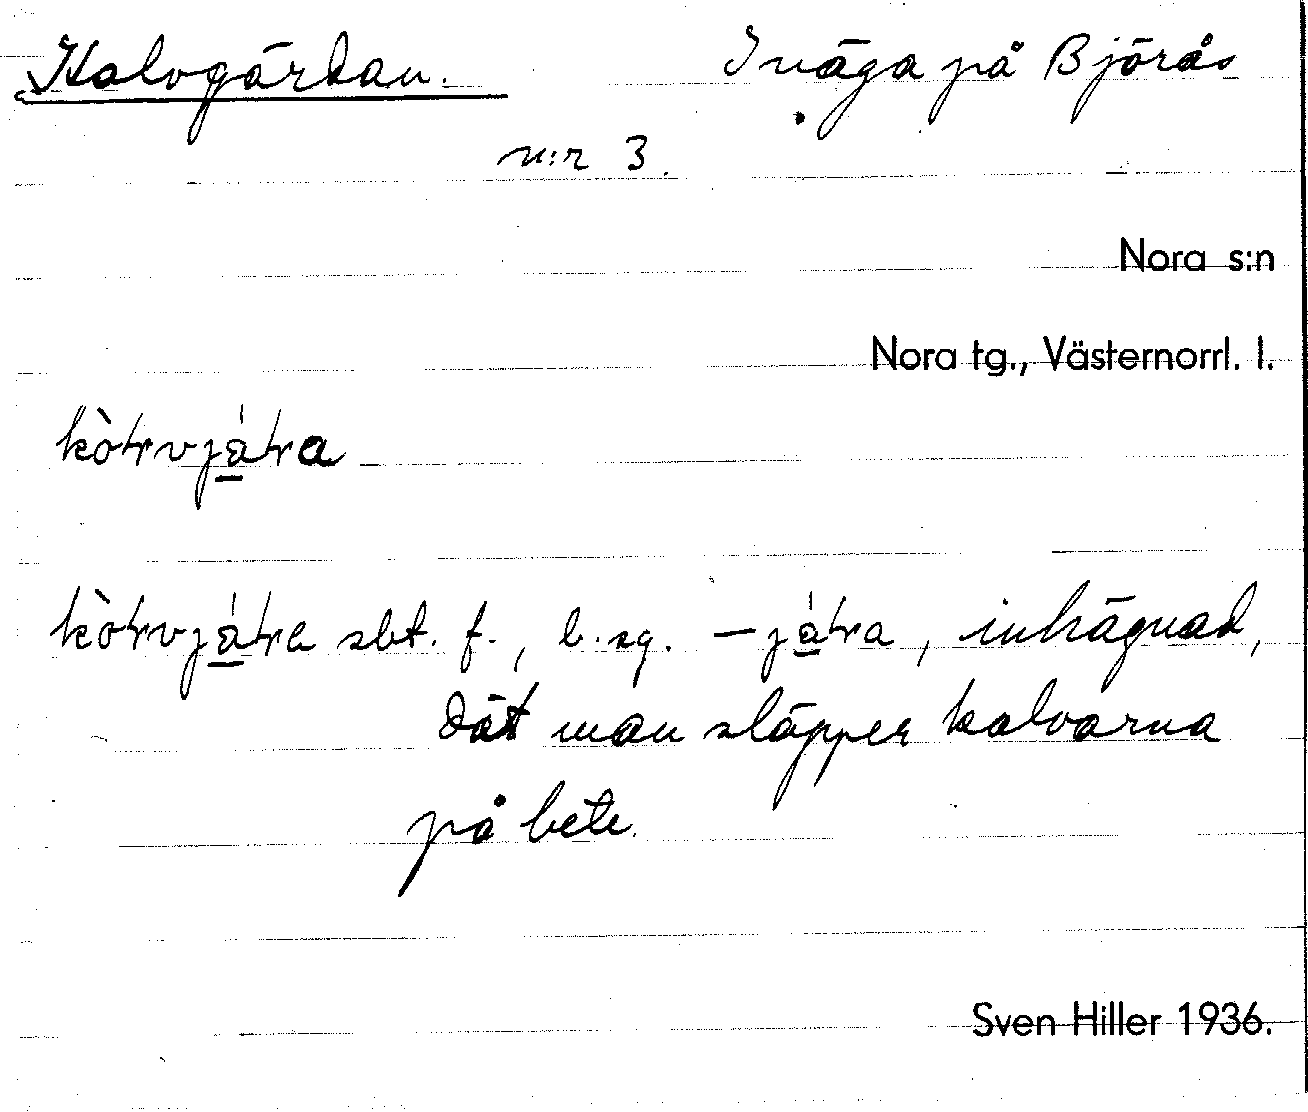 Kalvgärdan. Inäga på Björås
n:r 3.
Nora s:n
Nora tg., Västernorrl. l.
sbt. f., b. sg. inhägnad,
dät man släpper kalvarna
på bete.
Sven Hiller 1936.